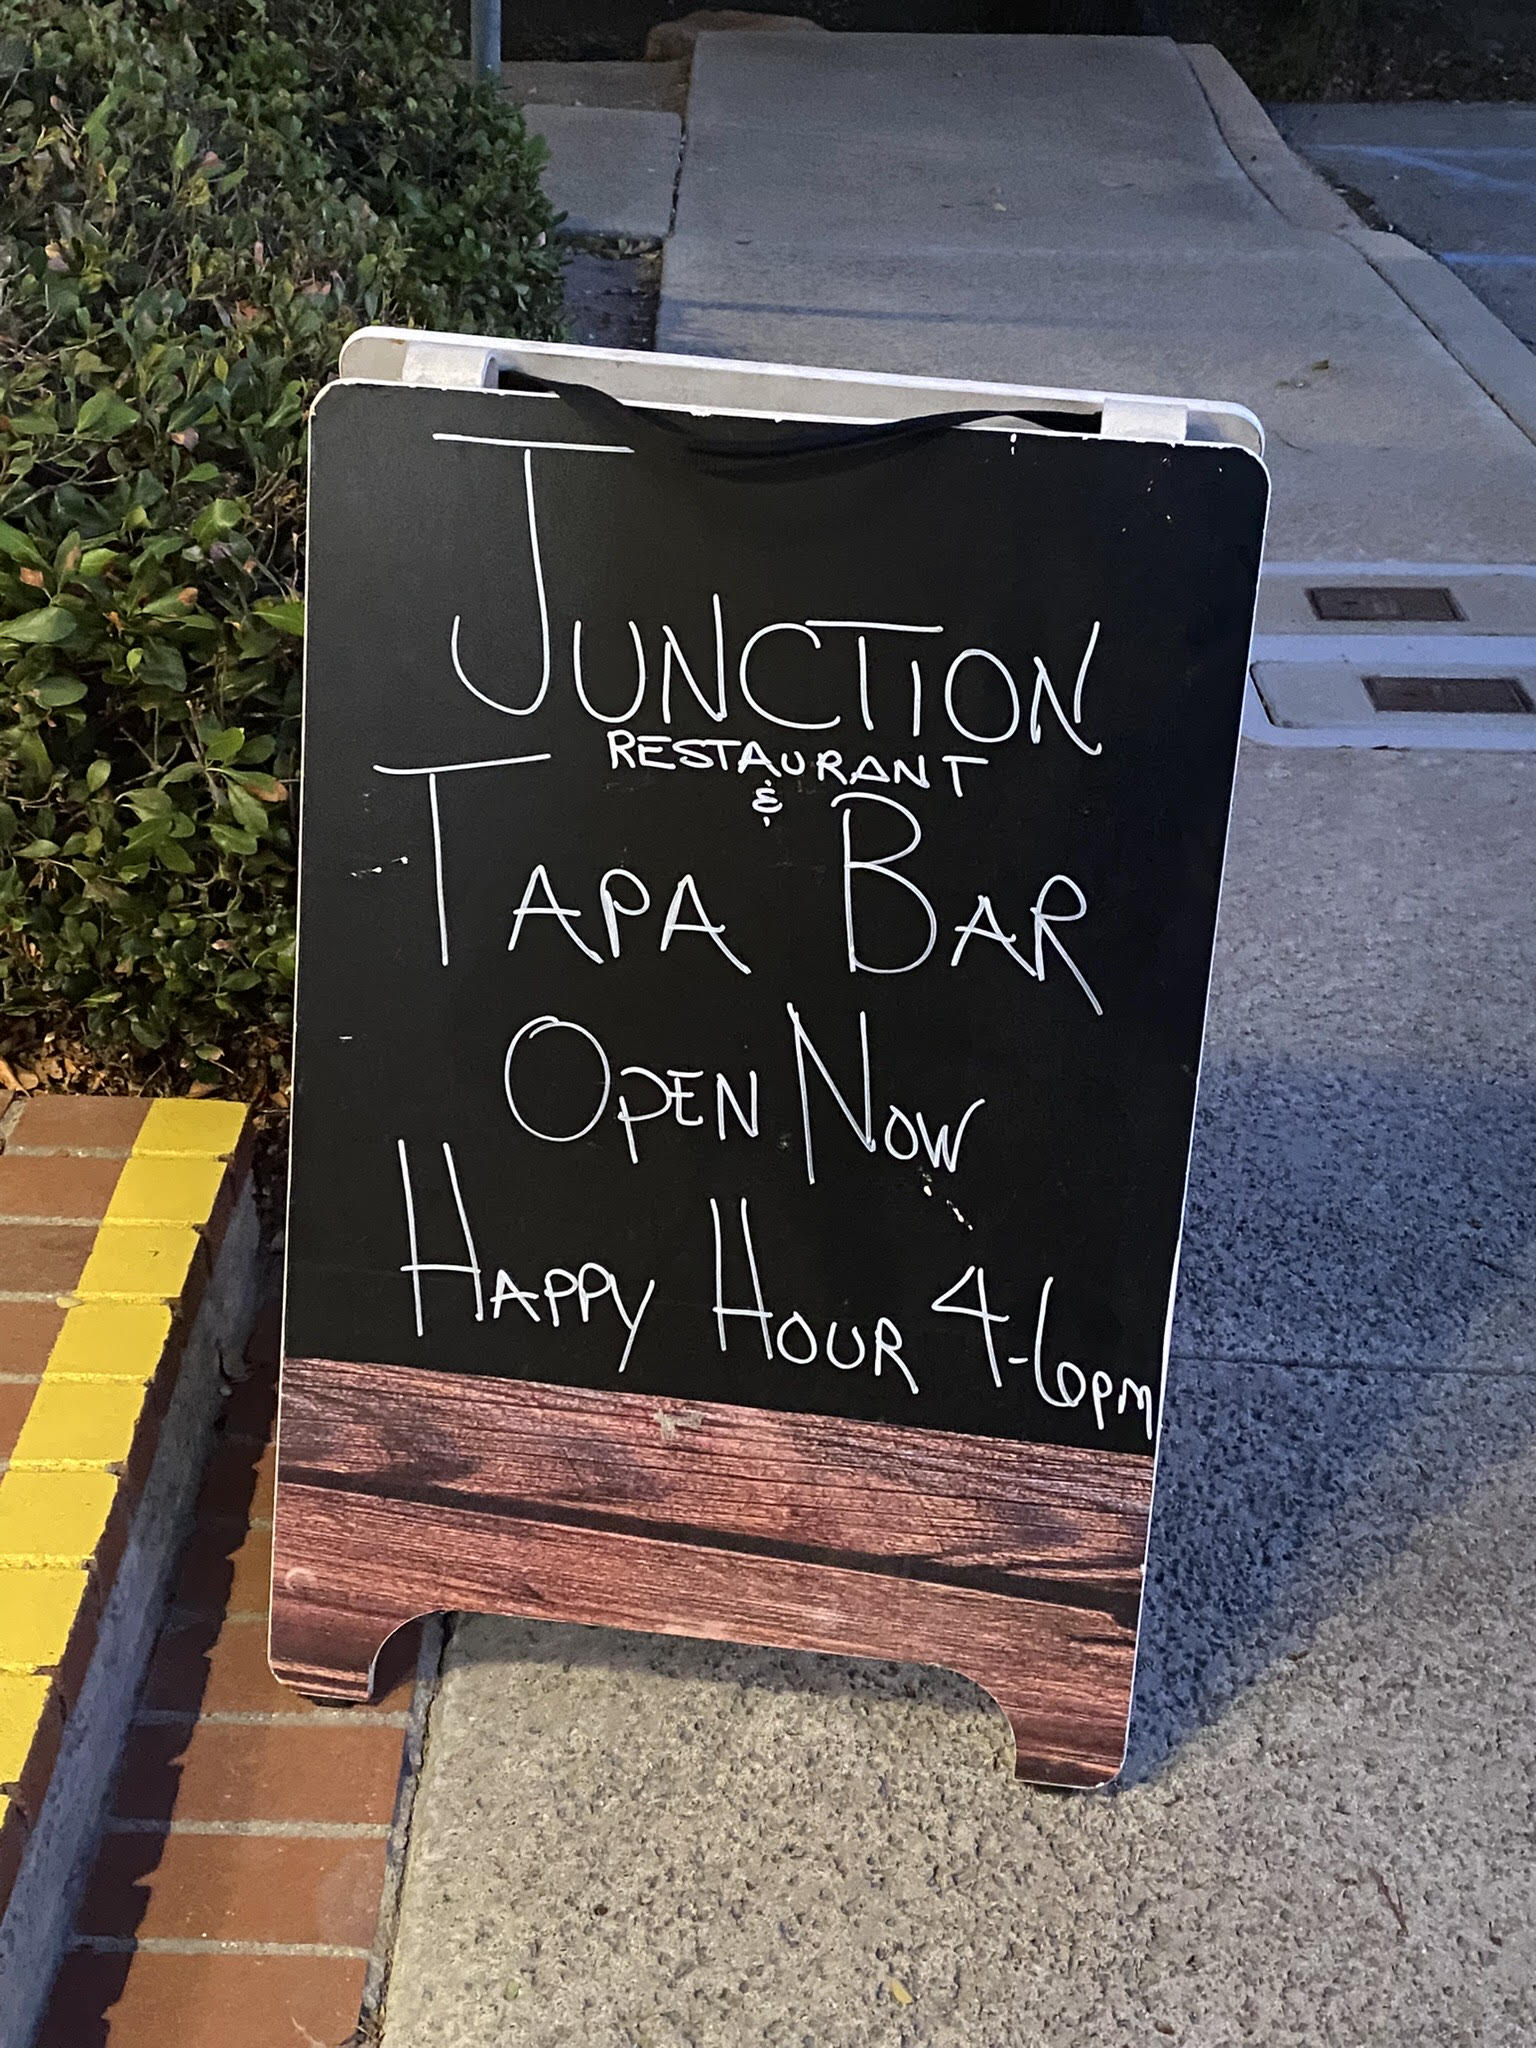 JUNCTION
RESTAURANT
&
TAPA BAR
OPEN NOW
HAPPY HOUR 4-6PM